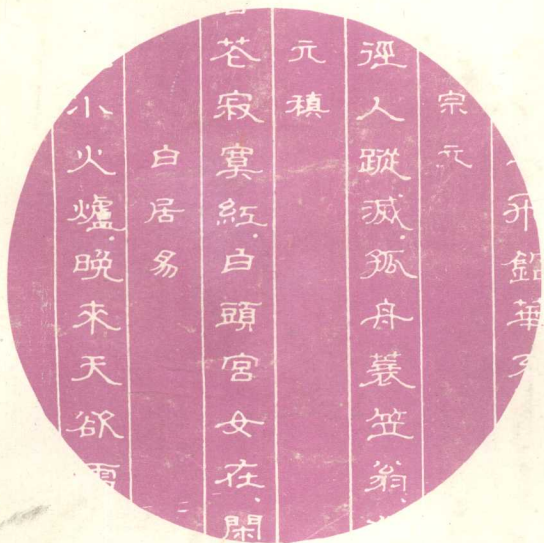 升鉛華
宗元
徑人蹤滅.孤舟蓑笠翁,
元稹
宮花寂寞紅.白頭宮女在,閑
白居易
小火爐.晚來天欲雪